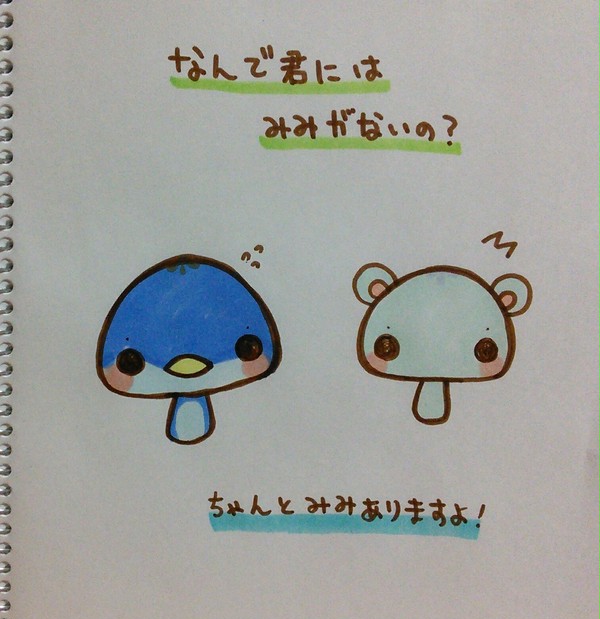 なんで君には
みみがないの？
ちゃんとみみありますよ！